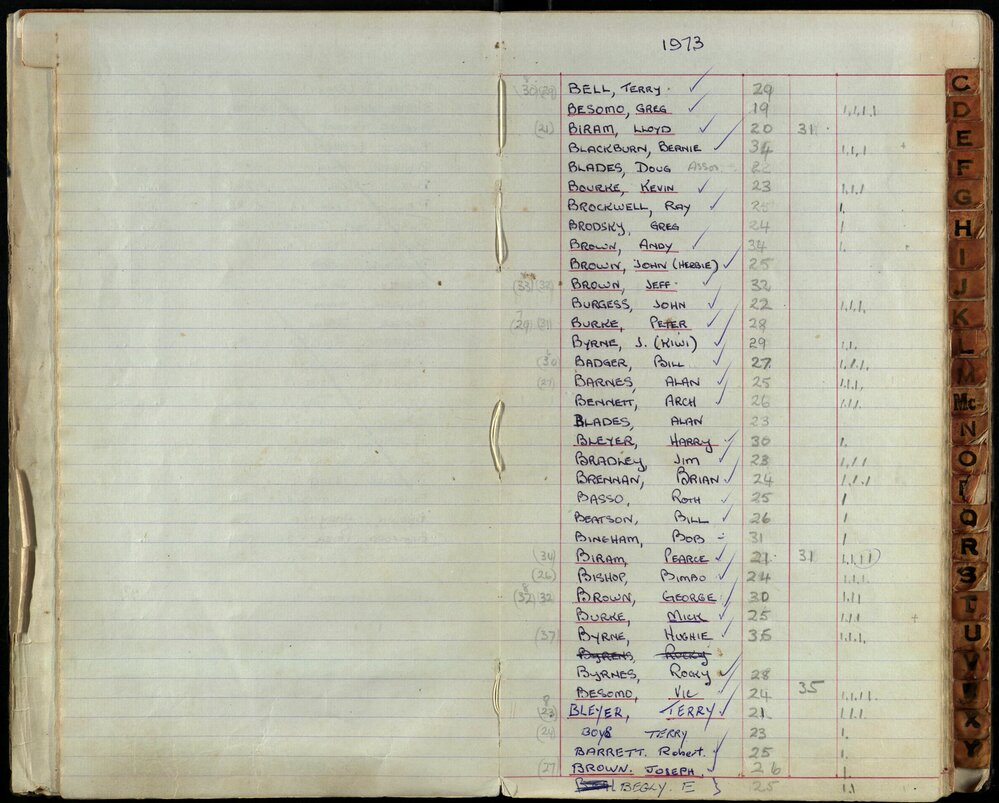 1973
BELL, TERRY. ✓ 29
BESOMO, GREG ✓ 19 1,1,1,1
(21) BIRAM, LLOYD ✓ 20 31
BLACKBURN, BERNIE ✓ 34 1,1,1
BLADES, DOUG Assoc.
BOURKE, KEVIN ✓ 23 1,1,1
BROCKWELL, RAY ✓ 25 1.
BRODSKY, GREG 24 1
BROWN, ANDY ✓ 34 1.
BROWN, JOHN (HERBIE) ✓ 25
(33) (32) BROWN, JEFF. ✓ 32
BURGESS, JOHN ✓ 22 1,1,1,
29 (31) BURKE, PETER ✓ 28
BYRNE, J. (KIWI) ✓ 29 1,1.
(30) BADGER, BILL ✓ 27 1,1,1.
(27) BARNES, ALAN ✓ 25 1,1,1.
BENNETT, ARCH ✓ 26 1,1,1.
BLADES, ALAN 23
BLEYER, HARRY ✓ 30 1.
BRADLEY, JIM ✓ 23 1,1,1
BRENNAN, BRIAN ✓ 24 1,1,1
BASSO, ROTH ✓ 25 1
BEATSON, BILL ✓ 26 1
BINGHAM, BOB 31 1
(34) BIRAM, PEARCE ✓ 21 31 1,1,1,1)
(26) BISHOP, BIMBO ✓ 24 1,1,1.
(32) 32 BROWN, GEORGE ✓ 30 1,1,1
BURKE, MICK ✓ 25 1,1,1
(37) BYRNE, HUGHIE ✓ 35 1,1,1,
BYRENS, ROCKY
BYRNES, ROCKY ✓ 28
BESOMO, VIC ✓ 24 35 1,1,1,1,
(23) BLEYER, TERRY ✓ 21 1,1,1.
(24) BOYS TERRY 23 1.
BARRETT. Robert. ✓ 25 1.
(27) BROWN. JOSEPH ✓ 26 1.
BEGLY. E 25 1,1
C
D
E
F
G
H
I
J
K
L
M
Mc
N
O
P
Q
R
S
T
U
V
X
Y